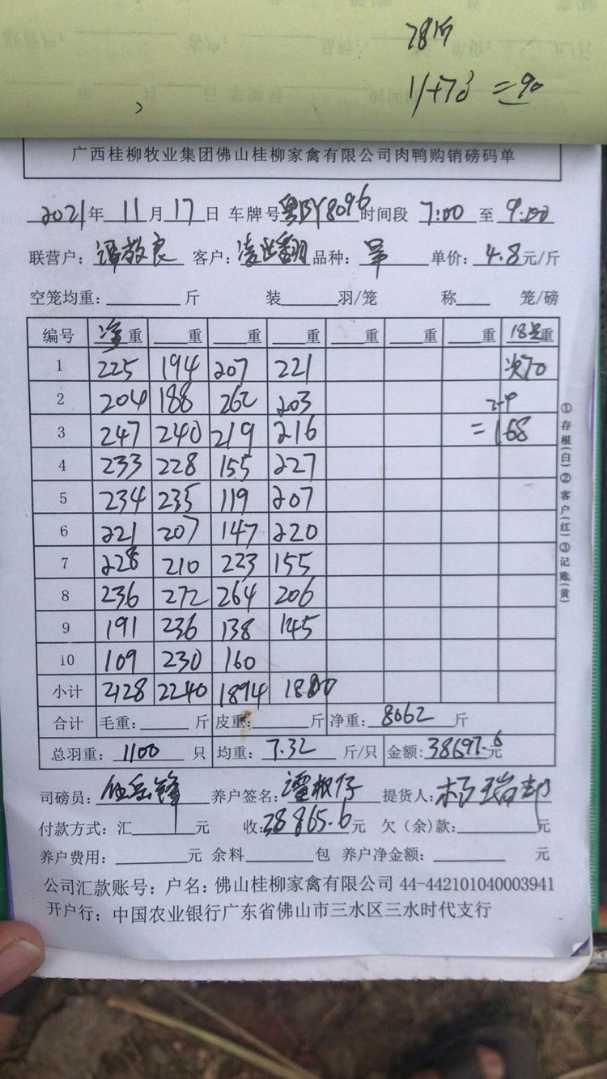 28斤
11+79=90
广西桂柳牧业集团佛山桂柳家禽有限公司肉鸭购销磅码单
2021年 11月 17日 车牌号粤BY8096 时间段 7:00 至 9:00
联营户: 客户: 品种: 单价: 4.8元/斤
空笼均重: 斤 装 羽/笼 称 笼/磅
编号 净重 重 重 重 重 重 重 重
1 225 194 207 221 70
2 204 188 262 203
3 247 240 219 216 =168
4 233 228 155 227
5 234 235 119 207
6 221 207 147 220
7 228 210 223 155
8 236 272 264 206
9 191 236 138 145
10 109 230 160
小计 2128 2240 1894 1800
合计 毛重: 斤 皮重: 斤 净重: 8062 斤
总羽重: 1100 只 均重: 7.32 斤/只 金额: 38697.6元
司磅员: 养户签名: 提货人:
付款方式: 汇 元 收: 38865.6元 欠(余)款: 元
养户费用: 元 余料 包 养户净金额: 元
公司汇款账号: 户名: 佛山桂柳家禽有限公司 44-442101040003941
开户行: 中国农业银行广东省佛山市三水区三水时代支行
①存根(白)②客户(红)③记账(黄)